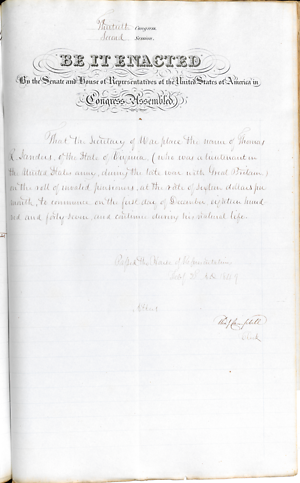 Thirtieth Congress
Second Session.
BE IT ENACTED
By the Senate and House of Representatives of the United States of America in
Congress Assembled,
That the Secretary of War place the name of
of the State of Virginia, (who was a lieutenant in
the United States army, during the late war with Great Britain,)
on the roll of invalid pensioners, at the rate of dollars per
month, to commence on the first day of December, eighteen hund
red and forty seven, and continue during his natural life.
Passed the House of Representatives
Attest
Tho. J. Campbell
Clerk